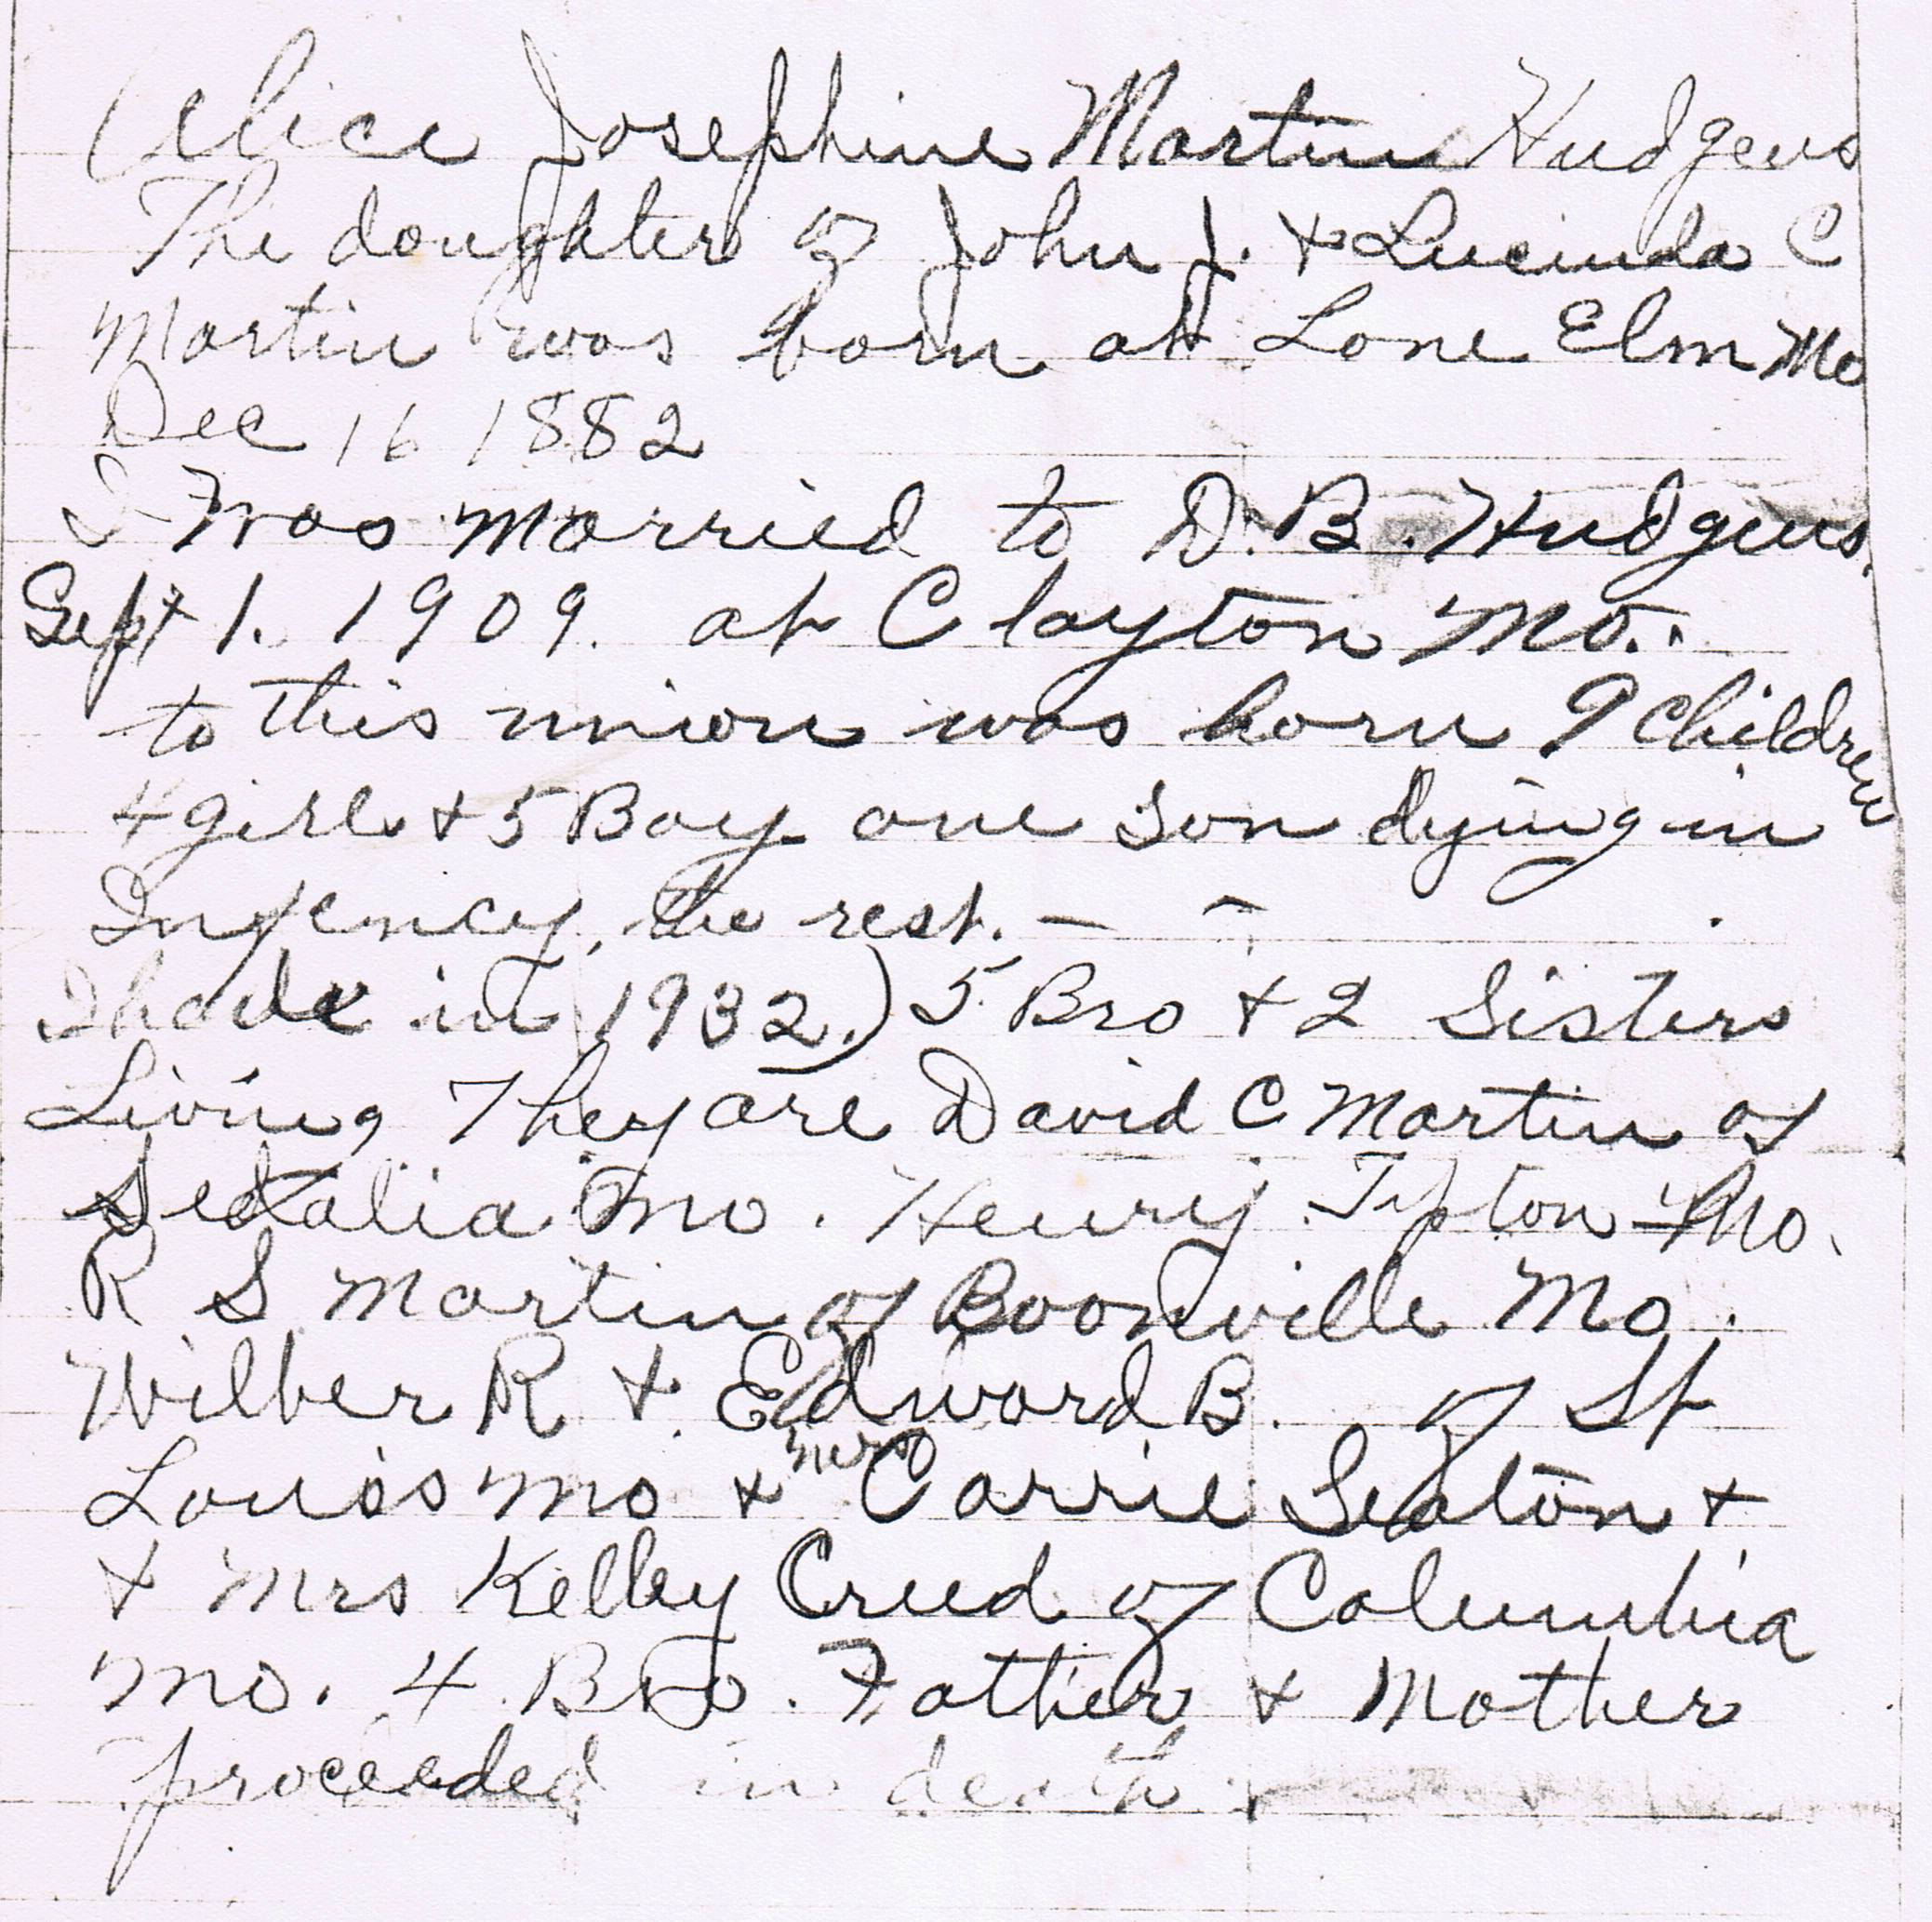 Alice Josephine Martin Hudgens
The doughter of John J. & Lucinda C
Martin was born at Lone Elm Mo
Dec 16 1882
I was married to D. B. Hudgens.
Sept 1. 1909. at Clayton Mo.
to this union was born 9 children
4 girls + 5 Boy one son dying in
Infency, the rest. —  –
I have in 1932.) 5 Bro + 2 Sisters
Living They are David C Martin of
Sedalia Mo. Henry Tipton Mo.
R S Martin of Boonville Mo.
Wilber R + Edword B. of St
Louis Mo + Mrs Carrie Sexton +
+ Mrs Kelley Creed of Columbia
Mo. 4 Bro. Father + Mother
proceeded in death